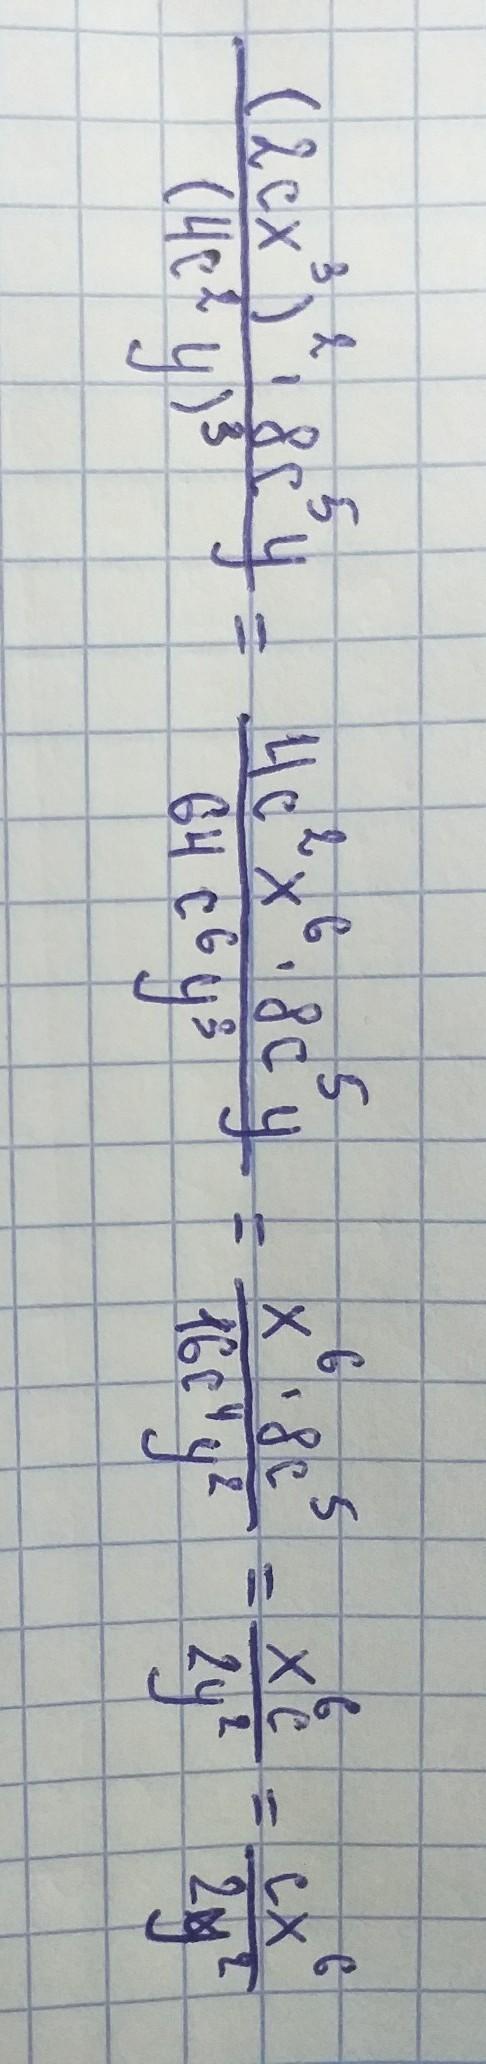 (2cx³)² · 8c⁵y / (4c²y)³ = 4c²x⁶ · 8c⁵y / 64c⁶y³ = x⁶ · 8c⁵ / 16c⁴y² = x⁶c / 2y² = cx⁶ / 2y²